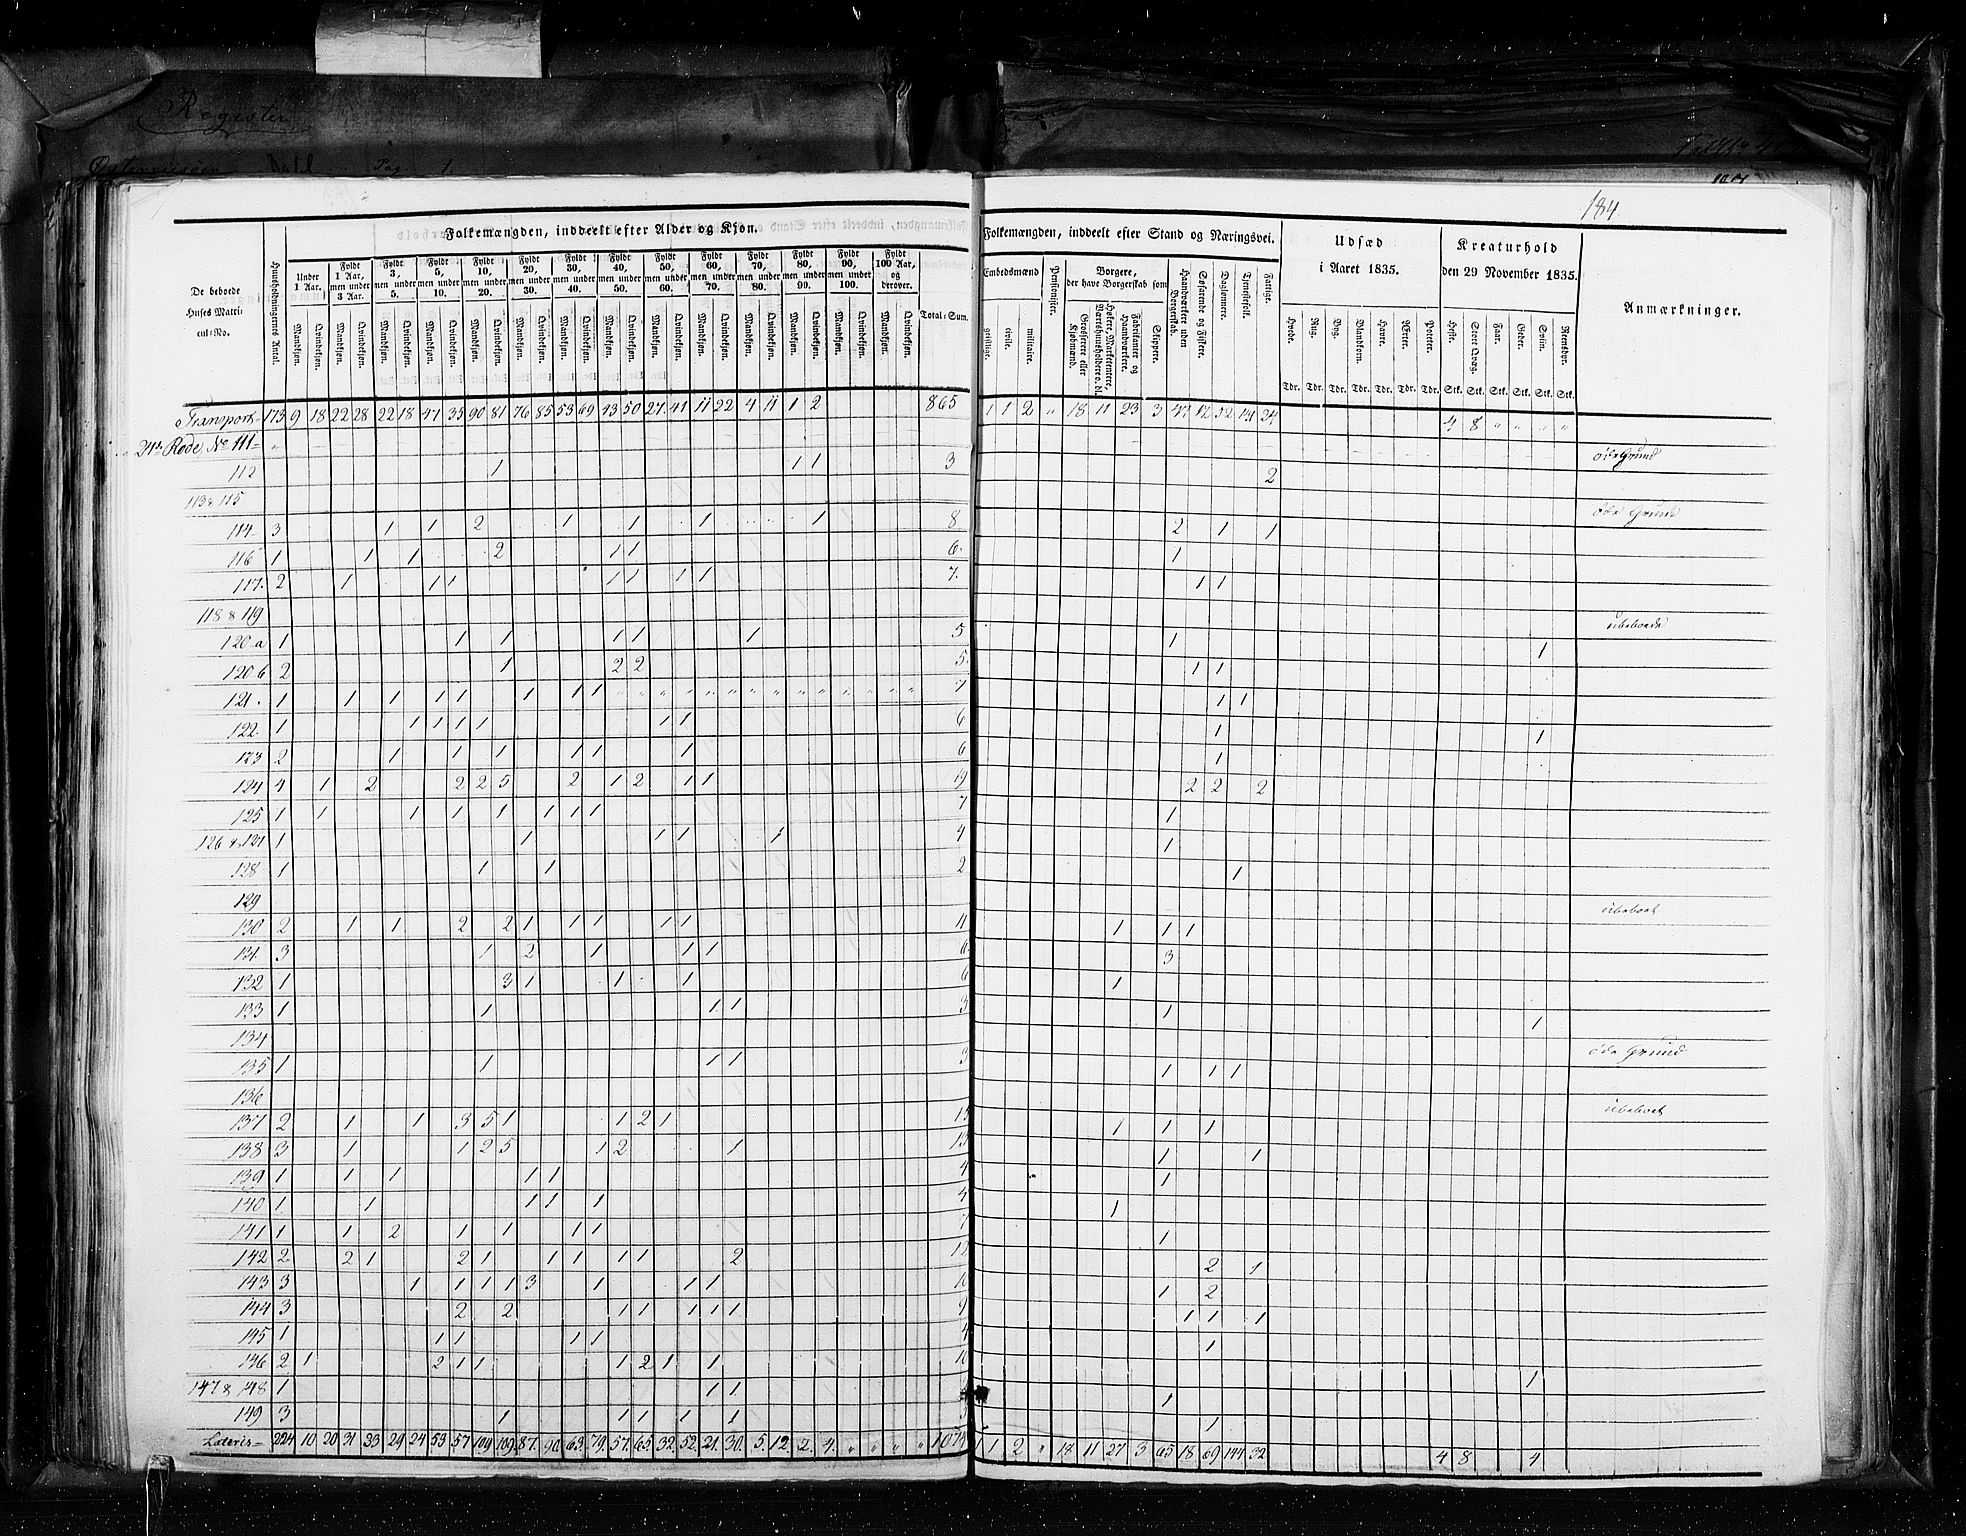 Register
Pag. 1.
184
Folkemængden, inddeelt efter Alder og Kjøn.
De beboede Huses Matricul=No.
Huusholdningernes Antal.
Under 1 Aar.
Fyldt 1 Aar, men under 3 Aar.
Fyldt 3, men under 5.
Fyldt 5, men under 10.
Fyldt 10, men under 20.
Fyldt 20, men under 30.
Fyldt 30, men under 40.
Fyldt 40, men under 50.
Fyldt 50, men under 60.
Fyldt 60, men under 70.
Fyldt 70, men under 80.
Fyldt 80, men under 90.
Fyldt 90, men under 100.
Fyldt 100 Aar, og derover.
Mandkjøn. Qvindekjøn.
Total=Sum.
Folkemængden, inddeelt efter Stand og Næringsvei.
Embedsmænd
geistlige. civile. militaire.
Pensionister.
Borgere, der have Borgerskab som
Grosserere eller Kjøbmænd.
Høkere, Marketentere, Værtshuusholdere o. dl.
Fabrikanter og Haandværkere.
Skippere.
Haandværkere uden Borgerskab.
Søfarende og Fiskere.
Daglønnere.
Tjenestefolk.
Fattige.
Udsæd i Aaret 1835.
Hvede. Rug. Byg. Blandkorn. Havre. Ærter. Poteter.
Tdr. Tdr. Tdr. Tdr. Tdr. Tdr. Tdr.
Kreaturhold den 29 November 1835.
Heste. Stort Qvæg. Faar. Geder. Sviin. Reensdyr.
Stk. Stk. Stk. Stk. Stk. Stk.
Anmærkninger.
Transport 173 9 18 22 28 22 18 47 35 90 81 76 85 53 69 43 50 27 41 11 22 4 11 1 2 865 1 1 2 " 18 11 23 3 24 4 8 " " " "
Rode, No 111 øde Grund
112 1 1 1 3 2
113 & 115 øde Grund
114 3 1 1 2 1 1 1 1 8 2 1 1
116 1 1 1 2 1 1 6 1
117 2 1 1 1 1 1 1 1 7 1 1
118 & 119 ubeboede
120 a 1 1 1 1 1 1 5 1 1
120 b 2 1 2 2 5 1 1
121 1 1 1 1 1 1 1 1 7 1 1
122 1 1 1 1 1 1 1 6 1 1
123 2 1 1 1 1 1 1 6 1
124 4 1 2 2 2 5 2 1 2 1 1 19 2 2 2
125 1 1 1 1 1 1 1 1 7 1
126 & 127 1 1 1 1 1 4 1
128 1 1 1 2 1
129 ubeboet
130 2 1 1 2 2 1 1 1 1 1 11 1 1 1
131 3 1 2 1 1 1 6 3
132 1 3 1 1 1 6 1
133 1 1 1 1 3 1 1
134 øde Grund
135 1 1 1 1 3 1 1 1
136 ubeboet
137 2 1 1 3 5 1 1 2 1 15 1 1 1
138 3 1 1 2 5 1 2 1 13 1 1
139 1 1 1 1 1 4 1
140 1 1 1 1 1 4 1
141 1 1 2 1 1 1 1 7 1
142 2 2 1 2 1 1 1 1 1 2 12 2 1
143 3 1 1 1 1 3 1 1 1 10 1 2
144 3 2 2 1 1 1 1 1 9 1 1 1
145 1 1 1 1 1 4 1
136 2 1 2 1 1 1 2 1 1 10 1
147 & 148 1 1 1 1
149 3 1 1 1 1 1 5 1
Lateris 224 10 20 31 33 29 24 53 57 109 109 87 90 63 79 57 65 32 52 21 30 5 12 2 4 " " " " 1 1 2 " 18 11 27 3 65 18 89 144 32 4 8 4